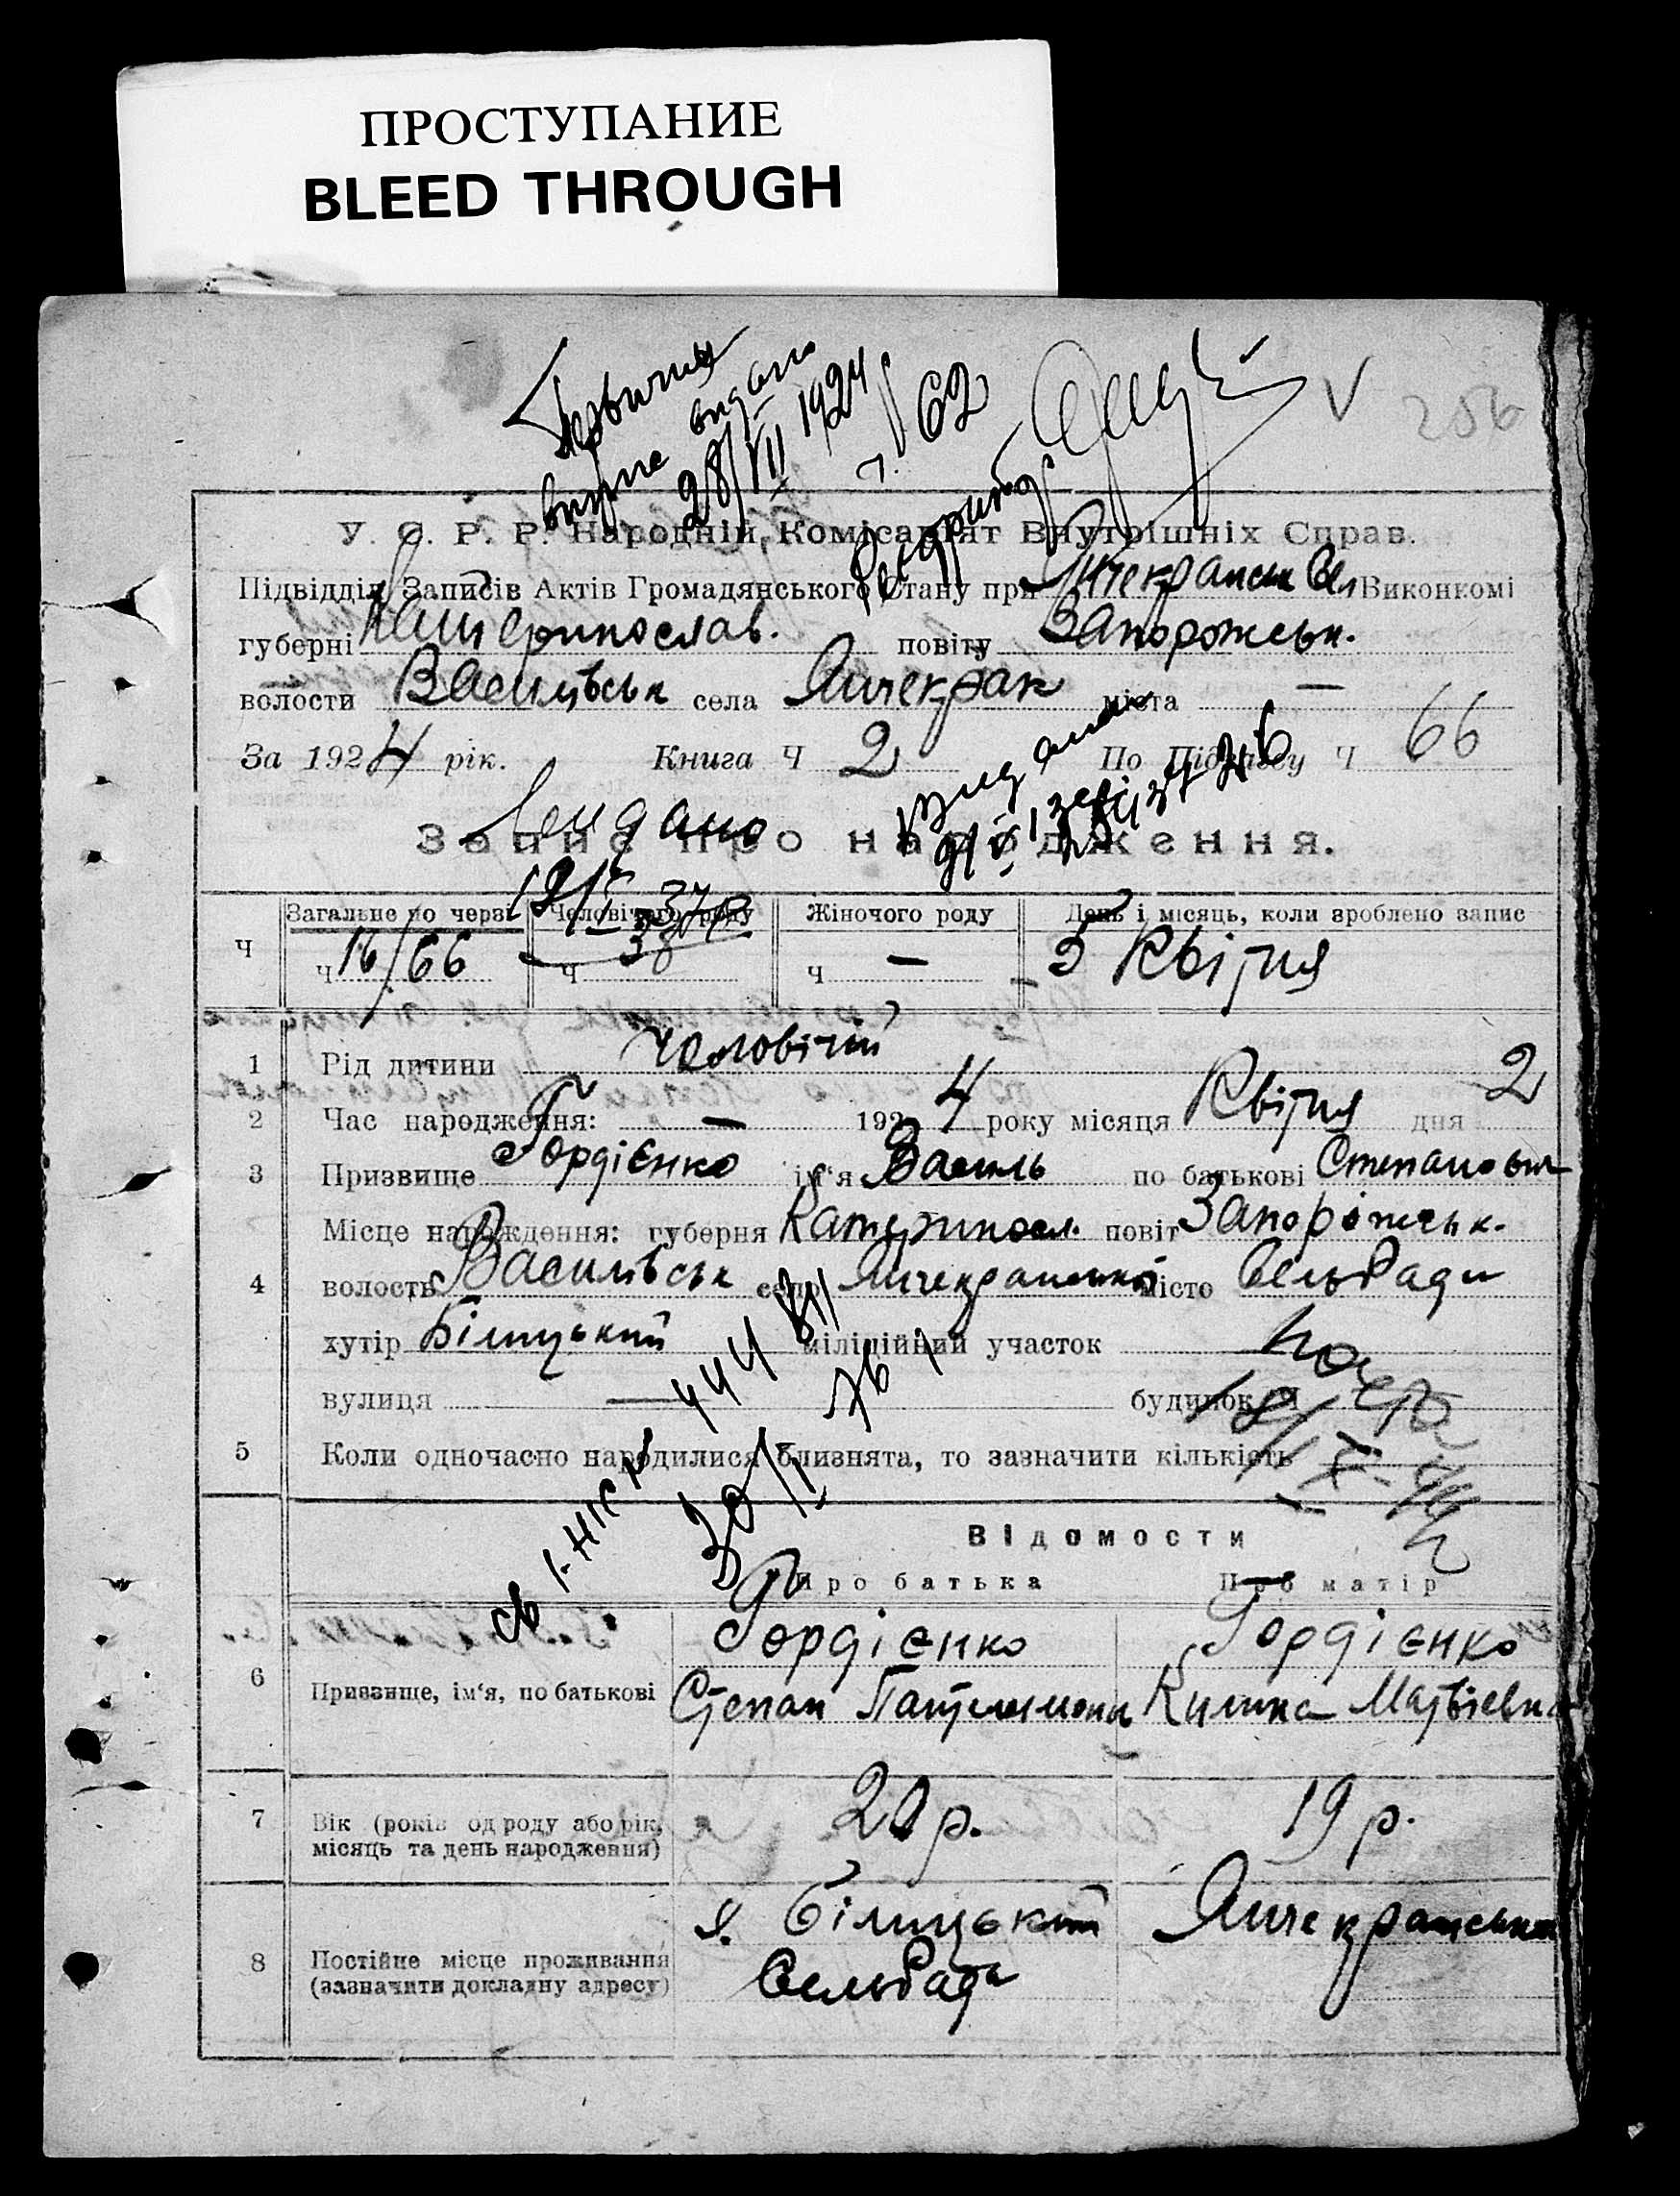 ПРОСТУПАНИЕ
BLEED THROUGH
видано
28/VII 1924 62
V 256
У. С. Р. Р. Народній Комісаріят Внутрішніх Справ.
Підвідділ Записів Актів Громадянського Стану при Янчекранськ Сел Виконкомі
губерні Катеринослав. повіту Запорожськ.
волости Василівськ села Янчекрак міста —
За 1924 рік. Книга Ч 2 По Підрозду Ч 66
Запис про народження.
Загальне по черзі Человічого роду Жіночого роду День і місяць, коли зроблено запис
Ч ч 16/66 ч 38 ч — 5 Квітня
1 Рід дитини Чоловічій
2 Час народження: — 1924 року місяця Квітня дня 2
3 Призвище Гордієнко ім'я Василь по батькові Степанович
Місце народження: губерня Катериносл. повіт Запоріжськ.
4 волость Василівськ село Янчекранської місто СельРади
хутір Біліцький міліційний участок
вулиця — будинок Ч
5 Коли одночасно народилися близнята, то зазначити кількість —
Відомости
Про батька Про матір
Гордієнко Гордієнко
6 Призвище, ім'я, по батькові Степан Пантелимони Килина Матвієвна
7 Вік (років од роду або рік, місяць та день народження) 20 р. 19 р.
8 Постійне місце проживання (зазначити докладну адресу) х. Біліцький Янчекранська
СельРада